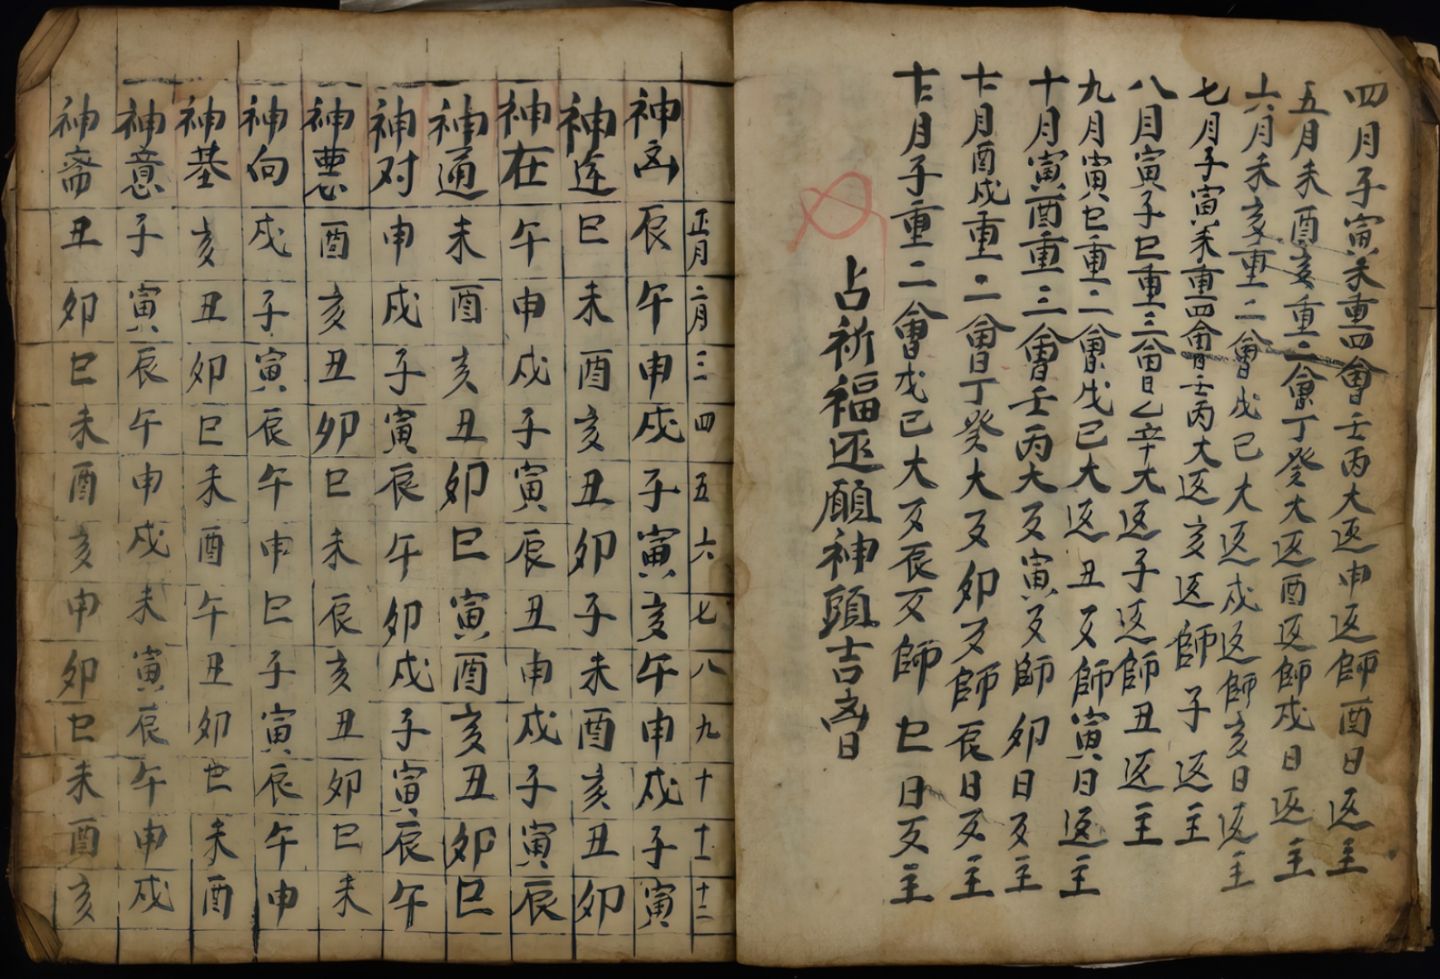 四月子寅未重四會壬丙大返申返師酉日返主
五月未酉亥重二會丁癸大返酉返師戌日返主
六月未亥重二會戊己大返戌返師亥日返主
七月子寅未重四會日壬丙大返亥返師子返主
八月寅子巳重三會日乙辛大返子返師丑返主
九月寅巳重二會戊己大返丑反師寅日返主
十月寅酉重三會日壬丙大反寅反師卯日反主
十一月酉戌重二會日丁癸大反卯反師辰日反主
十二月子重二會戊己大反辰反師巳日反主
占祈福还願神頭吉凶日
正月二月三四五六七八九十十一十二
神凶辰午申戌子寅亥午申戌子寅
神连巳未酉亥丑卯子未酉亥丑卯
神在午申戌子寅辰丑申戌子寅辰
神通未酉亥丑卯巳寅酉亥丑卯巳
神对申戌子寅辰午卯戌子寅辰午
神悪酉亥丑卯巳未辰亥丑卯巳未
神向戌子寅辰午申巳子寅辰午申
神基亥丑卯巳未酉午丑卯巳未酉
神意子寅辰午申戌未寅辰午申戌
神斋丑卯巳未酉亥申卯巳未酉亥